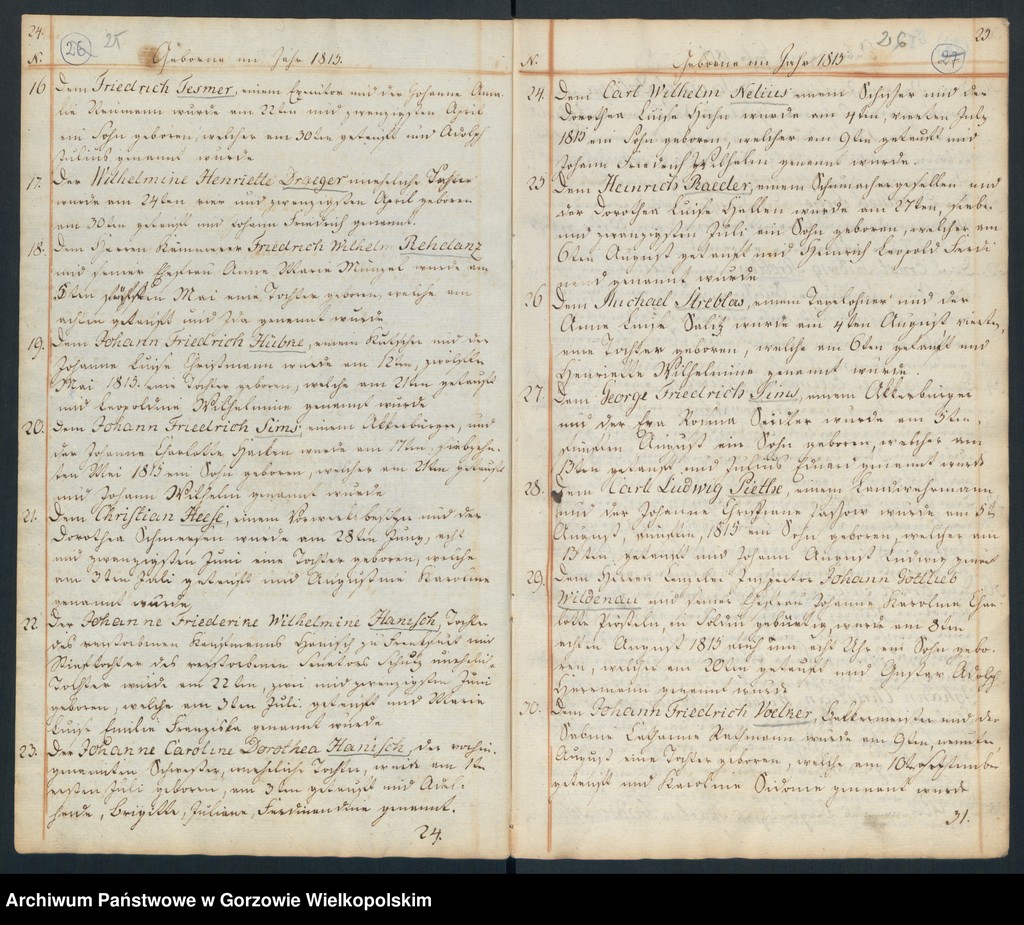 24.
26 25
N. Geborne im Jahr 1815.
16 Dem Friedrich Tesmer, einem und der Johanne Ama-
lie Neumann wurde am 22ten und zwanzigsten April
ein Sohn geboren, welcher am 30ten getauft und Adolph
Julius genannt wurde
17. Der Wilhelmine Henriette Draeger uneheliche Tochter
wurde am 24ten vier und zwanzigsten April geboren
am 30ten getauft und Johann Friedrich genannt.
18. Dem Herren Kämmerer Friedrich Wilhelm Rehdanz
und seiner Ehefrau Anne Marie Münzel wurde am
5ten fünften Mai eine Tochter geboren, welche am
achten getauft und Ida genannt wurde
19. Dem Johann Friedrich Hübne, einem Kutscher und der
Johanne Luise Christmann wurde am 12ten, zwölften
Mai 1815 eine Tochter geboren, welche am 21ten getauft
und Leopoldine Wilhelmine genannt wurde
20. Dem Johann Friedrich Sims, einem Akkerbürger, und
der Johanne Charlotte wurde am 17ten, siebzehn-
ten Mai 1815 ein Sohn geboren, welcher am 21ten getauft
und Johann Wilhelm genannt wurde
21. Dem Christian Heese, einem Vorwerksbesitzer und der
Dorothea wurde am 28ten Juny, acht
und zwanzigsten Juni eine Tochter geboren, welche
am 3ten Juli getauft und Augustine Karoline
genannt wurde
22. Der Johanne Friederine Wilhelmine Hanisch, Tochter
des verstorbenen Kaufmanns Hanisch zu und
Stieftochter des verstorbenen Senators Schulz unehel.
Tochter wurde am 22ten, zwei und zwanzigsten Juni
geboren, welche am 3ten Juli getauft und Marie
Luise Emilie Franziska genannt wurde
23. Der Johanne Caroline Dorothea Hanisch, der vorhin-
genannten Schwester, uneheliche Tochter, wurde am 1ten
ersten Juli geboren, am 3ten getauft und Adel-
heide, Brigitte, Juliane, Ferdinandine genannt.
24.
25
26 27
N. Geborne im Jahr 1815
24. Dem Carl Wilhelm Nelius einem und der
Dorothea Luise Huhn wurde am 4ten, vierten July
1815 ein Sohn geboren, welcher am 9ten getauft und
Johann Friedrich Wilhelm genannt wurde.
25 Dem Heinrich Raeder, einem Schumachergesellen und
der Dorothea Luise Hallen wurde am 27ten, siebe-
und zwanzigsten Juli ein Sohn geboren, welcher am
6ten August getauft und Heinrich Leopold Ferdi
nand genannt wurde
26 Dem Michael Streblas, einem Tagelöhner und der
Anne Luise Salitz wurde am 4ten August vierten,
eine Tochter geboren, welche am 6ten getauft und
Henriette Wilhelmine genannt wurde.
27. Dem George Friedrich Sims, einem Akkerbürger
und der Eva Rosina wurde am 5ten,
fünften August ein Sohn geboren, welcher am
13ten getauft und Julius Eduard genannt wurde
28. Dem Carl Ludwig Piethe, einem Landwehrmann
und der Johanne Christiane wurde am 5ten
August, fünften, 1815 ein Sohn geboren, welcher am
13ten, getauft und Johann August Ludwig
29. Dem Herren Inspector Johann Gottlieb
Wildenau und seiner Ehefrau Johanne Karoline Char-
lotte in Soldin gebürtig, wurde am 8ten
achten August 1815 um acht Uhr ein Sohn gebo-
ren, welcher am 20ten getauft und Gustav Adolph
Herrmann genannt wurde
30. Dem Johann Friedrich Voelker, und der
Sabine Catharine Rathmann wurde am 9ten, neunten
August eine Tochter geboren, welche am 10ten September
getauft und Karoline Sidonie genannt wurde
31.
Archiwum Państwowe w Gorzowie Wielkopolskim